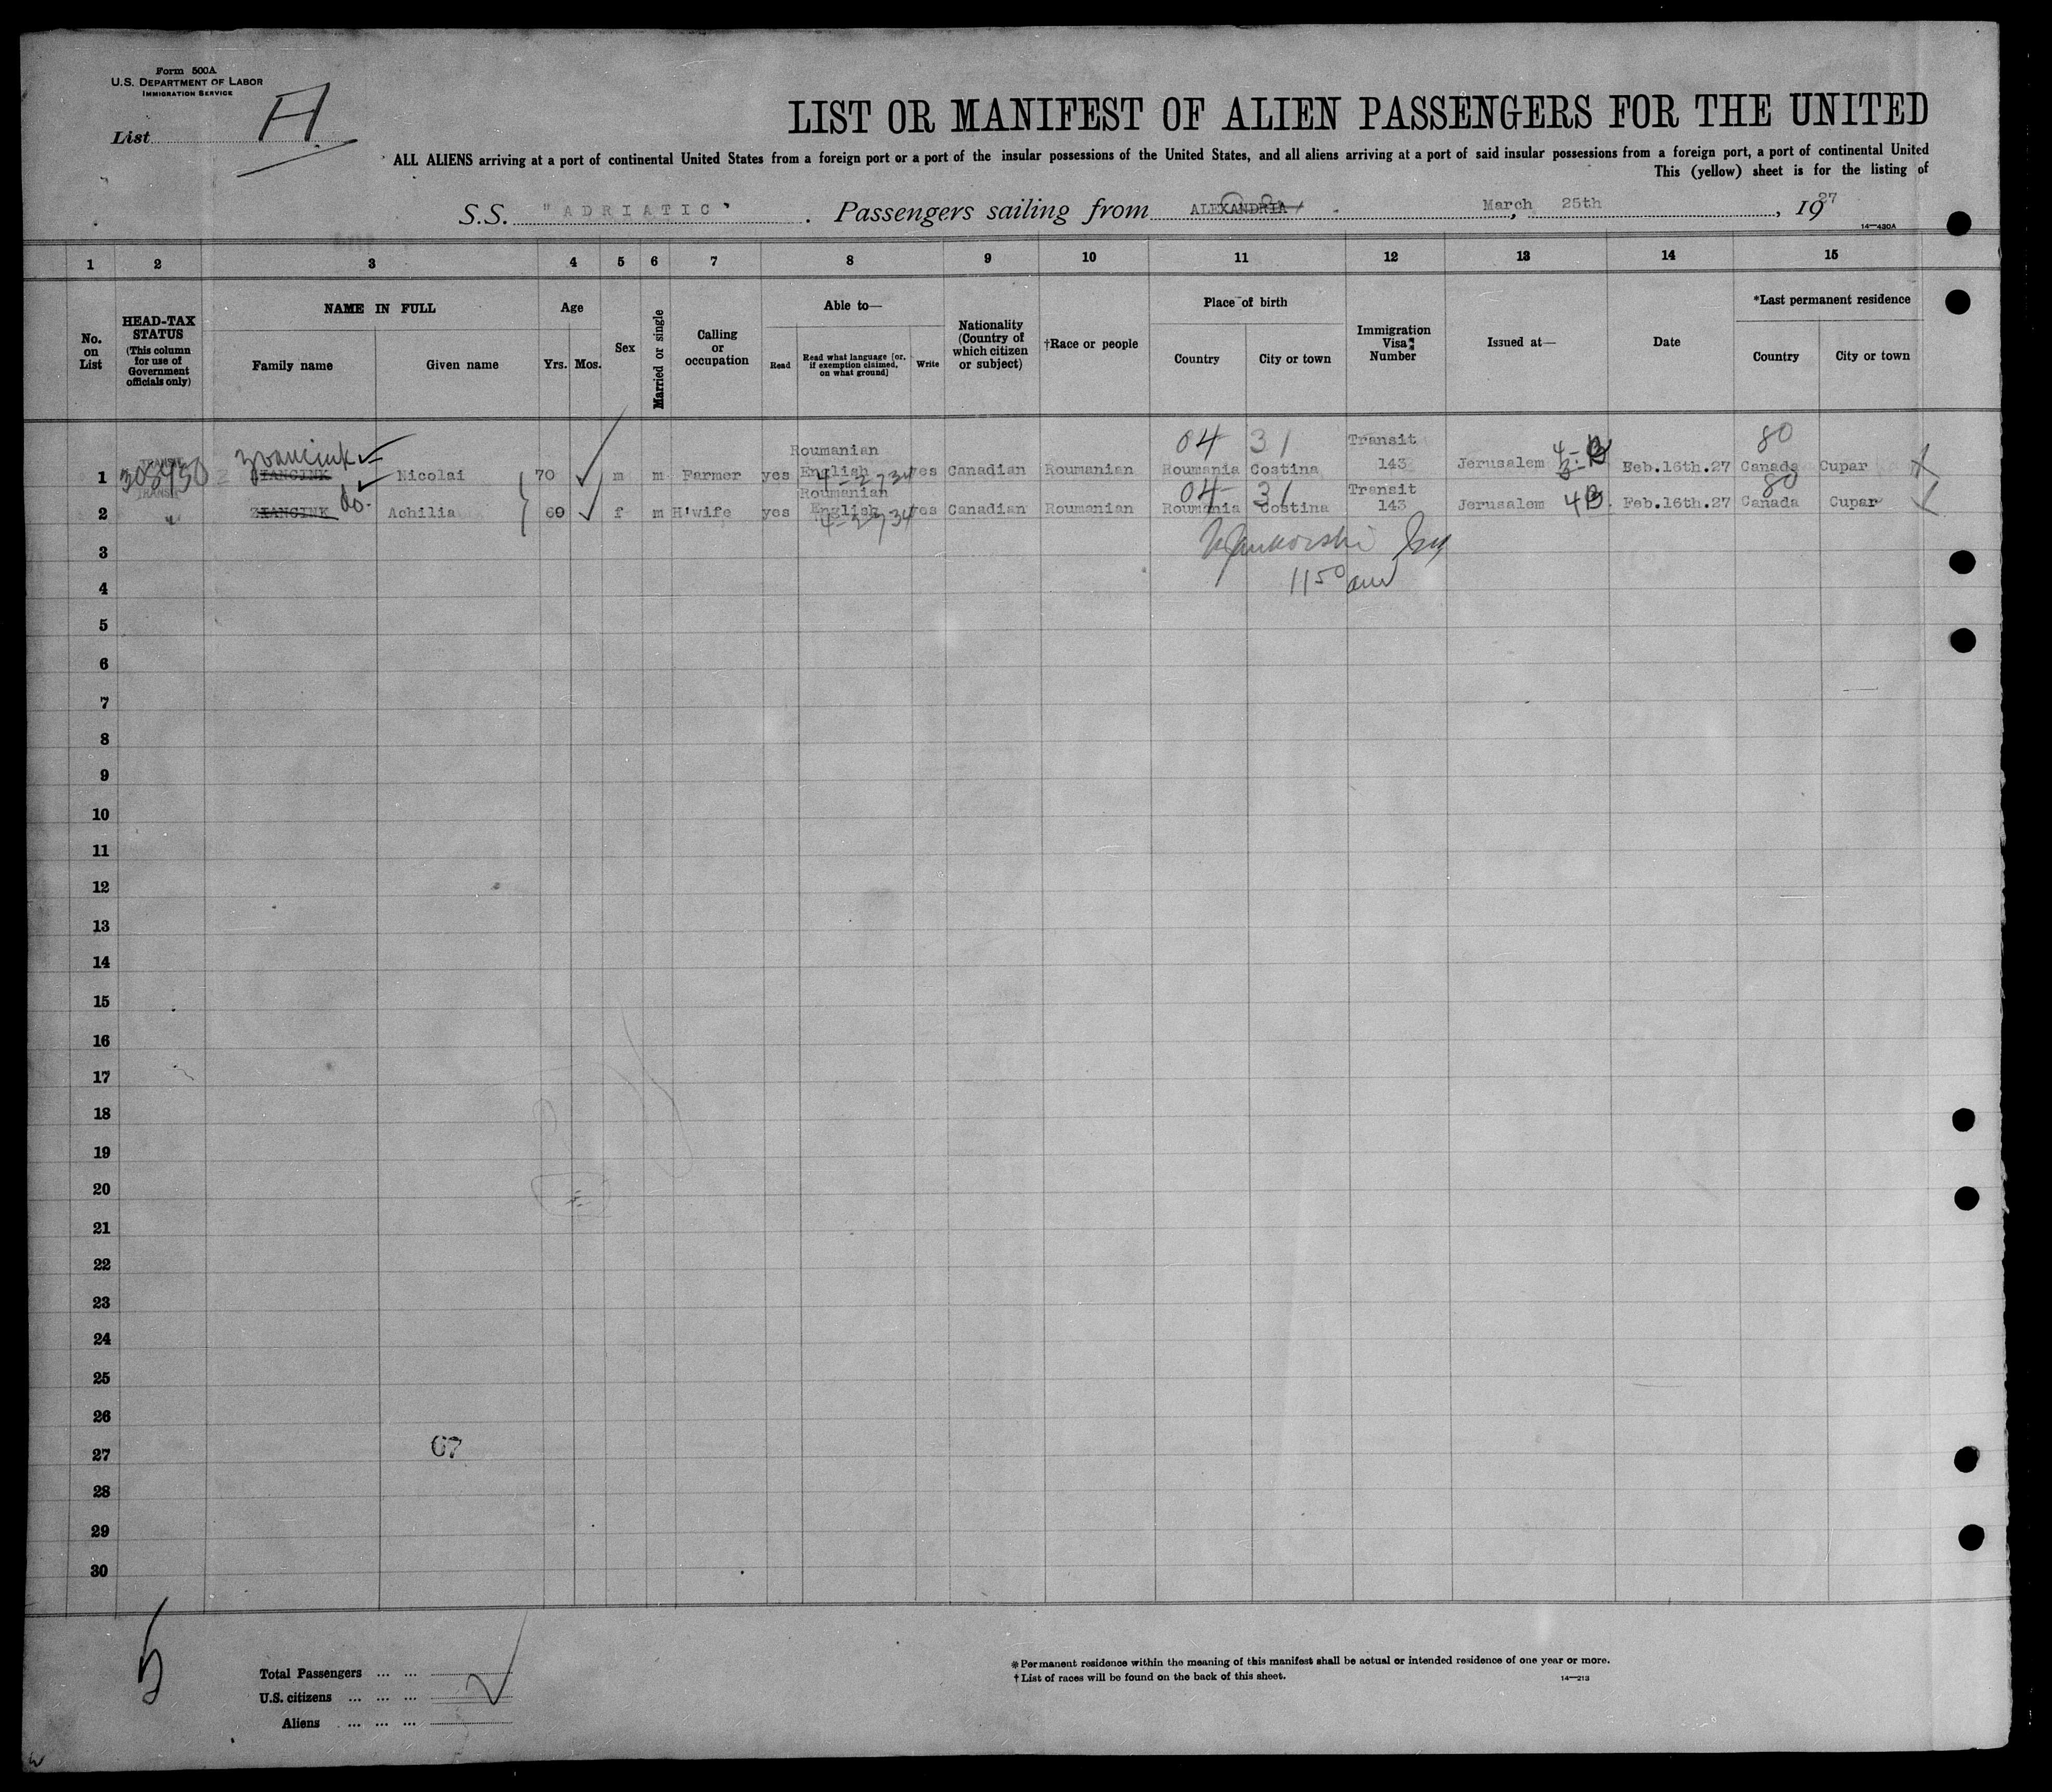 Form 500A
U.S. DEPARTMENT OF LABOR
IMMIGRATION SERVICE
List A
LIST OR MANIFEST OF ALIEN PASSENGERS FOR THE UNITED
ALL ALIENS arriving at a port of continental United States from a foreign port or a port of the insular possessions of the United States, and all aliens arriving at a port of said insular possessions from a foreign port, a port of continental United
This (yellow) sheet is for the listing of
S.S. "ADRIATIC" . Passengers sailing from ALEXANDRIA . March , 25th , 1927
14—430A
1 2 3 4 5 6 7 8 9 10 11 12 13 14 15
No. on List
HEAD-TAX STATUS (This column for use of Government officials only)
NAME IN FULL
Family name
Given name
Age
Yrs. Mos.
Sex
Married or single
Calling or occupation
Able to—
Read
Read what language [or, if exemption claimed, on what ground]
Write
Nationality (Country of which citizen or subject)
†Race or people
Place of birth
Country
City or town
Immigration Visa Number
Issued at—
Date
*Last permanent residence
Country
City or town
Roumanian 04 31 Transit 80
TRANSIT
1 Nicolai 70 m m Farmer yes English yes Canadian Roumanian Roumania Costina 143 Jerusalem Feb.16th.27 Canada Cupar
TRANSIT do. Roumanian 04 31 Transit 80
2 " Achilia 60 f m H'wife yes English yes Canadian Roumanian Roumania Costina 143 Jerusalem 4B. Feb.16th.27 Canada Cupar
3
4 1150 am
5
6
7
8
9
10
11
12
13
14
15
16
17
18
19
20
21
22
23
24
25
26
27 67
28
29
30
5
Total Passengers ... ...
U.S. citizens ... ... ...
Aliens ... ... ...
*Permanent residence within the meaning of this manifest shall be actual or intended residence of one year or more.
†List of races will be found on the back of this sheet.
14—213